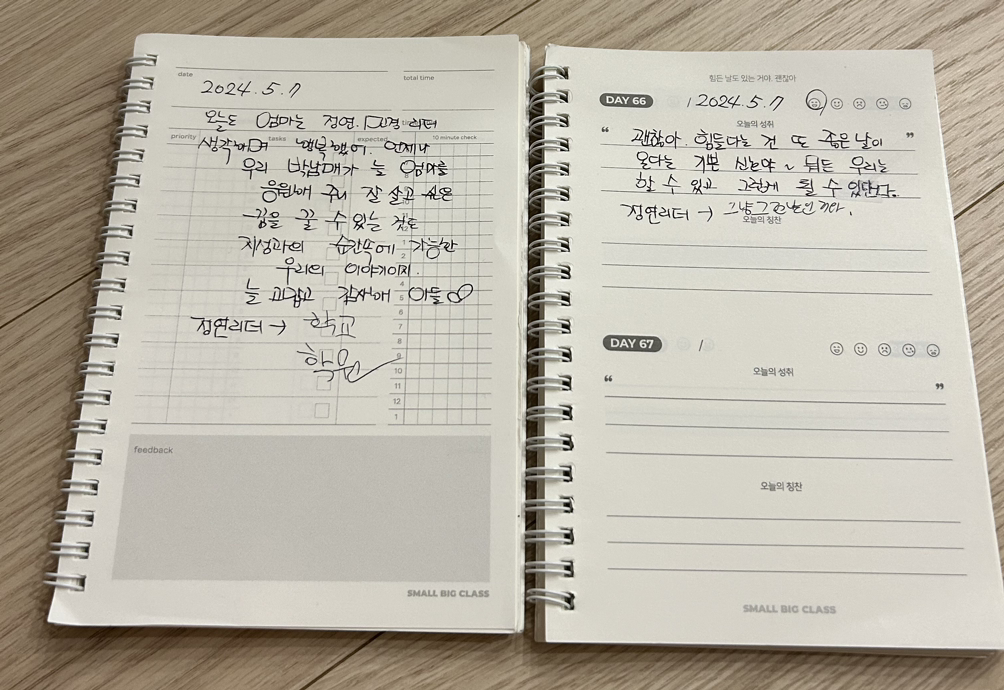 date
total time
2024.5.7
오늘도 엄마는 정영. 민경 리더
priority
tasks
expected
10 minute check
생각하며 행복했어. 언제나
우리 박남매가 늘 엄마를
응원해 주니 잘 살고 싶은
꿈을 꿀 수 있는 것도
지성과의 순간뿐에 가능한
우리의 이야기이지.
늘 고맙고 감사해 아들
정연리더 → 학교
학원
4
5
6
7
8
9
10
11
12
1
feedback
SMALL BIG CLASS
힘든 날도 있는 거야. 괜찮아
DAY 66
/ 2024.5.7
오늘의 성취
“ 괜찮아. 힘들다는 건 또 좋은 날이 ”
온다는 기쁜 신호야~ 뭐든 우리는
할 수 있고 그렇게 될 수 있단다.
정연리더 →
오늘의 칭찬
DAY 67
/
오늘의 성취
“ ”
오늘의 칭찬
SMALL BIG CLASS